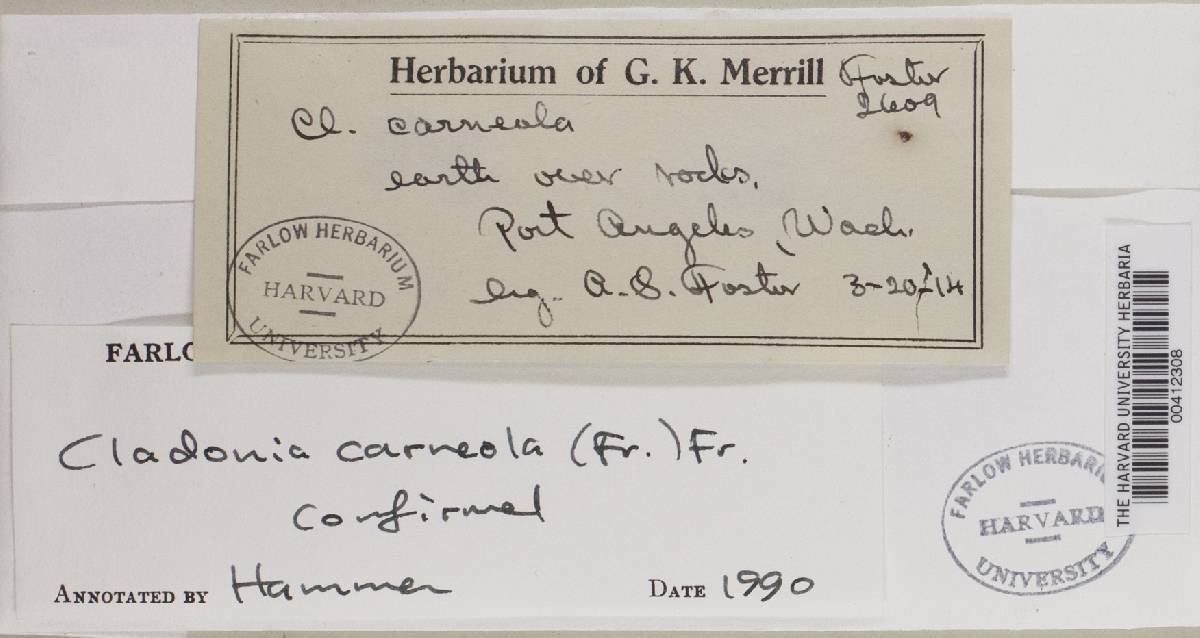 Herbarium of G. K. Merrill Foster
2609
Cl. carneola
earth over rocks.
Port Angeles, Wash.
Leg. A. S. Foster 3-20-14
FARLOW HERBARIUM
HARVARD
UNIVERSITY
FARLO
Cladonia carneola (Fr.) Fr.
confirmed
ANNOTATED BY Hammer DATE 1990
FARLOW HERBARI
HARVARD
UNIVERSITY
THE HARVARD UNIVERSITY HERBARIA
00412308